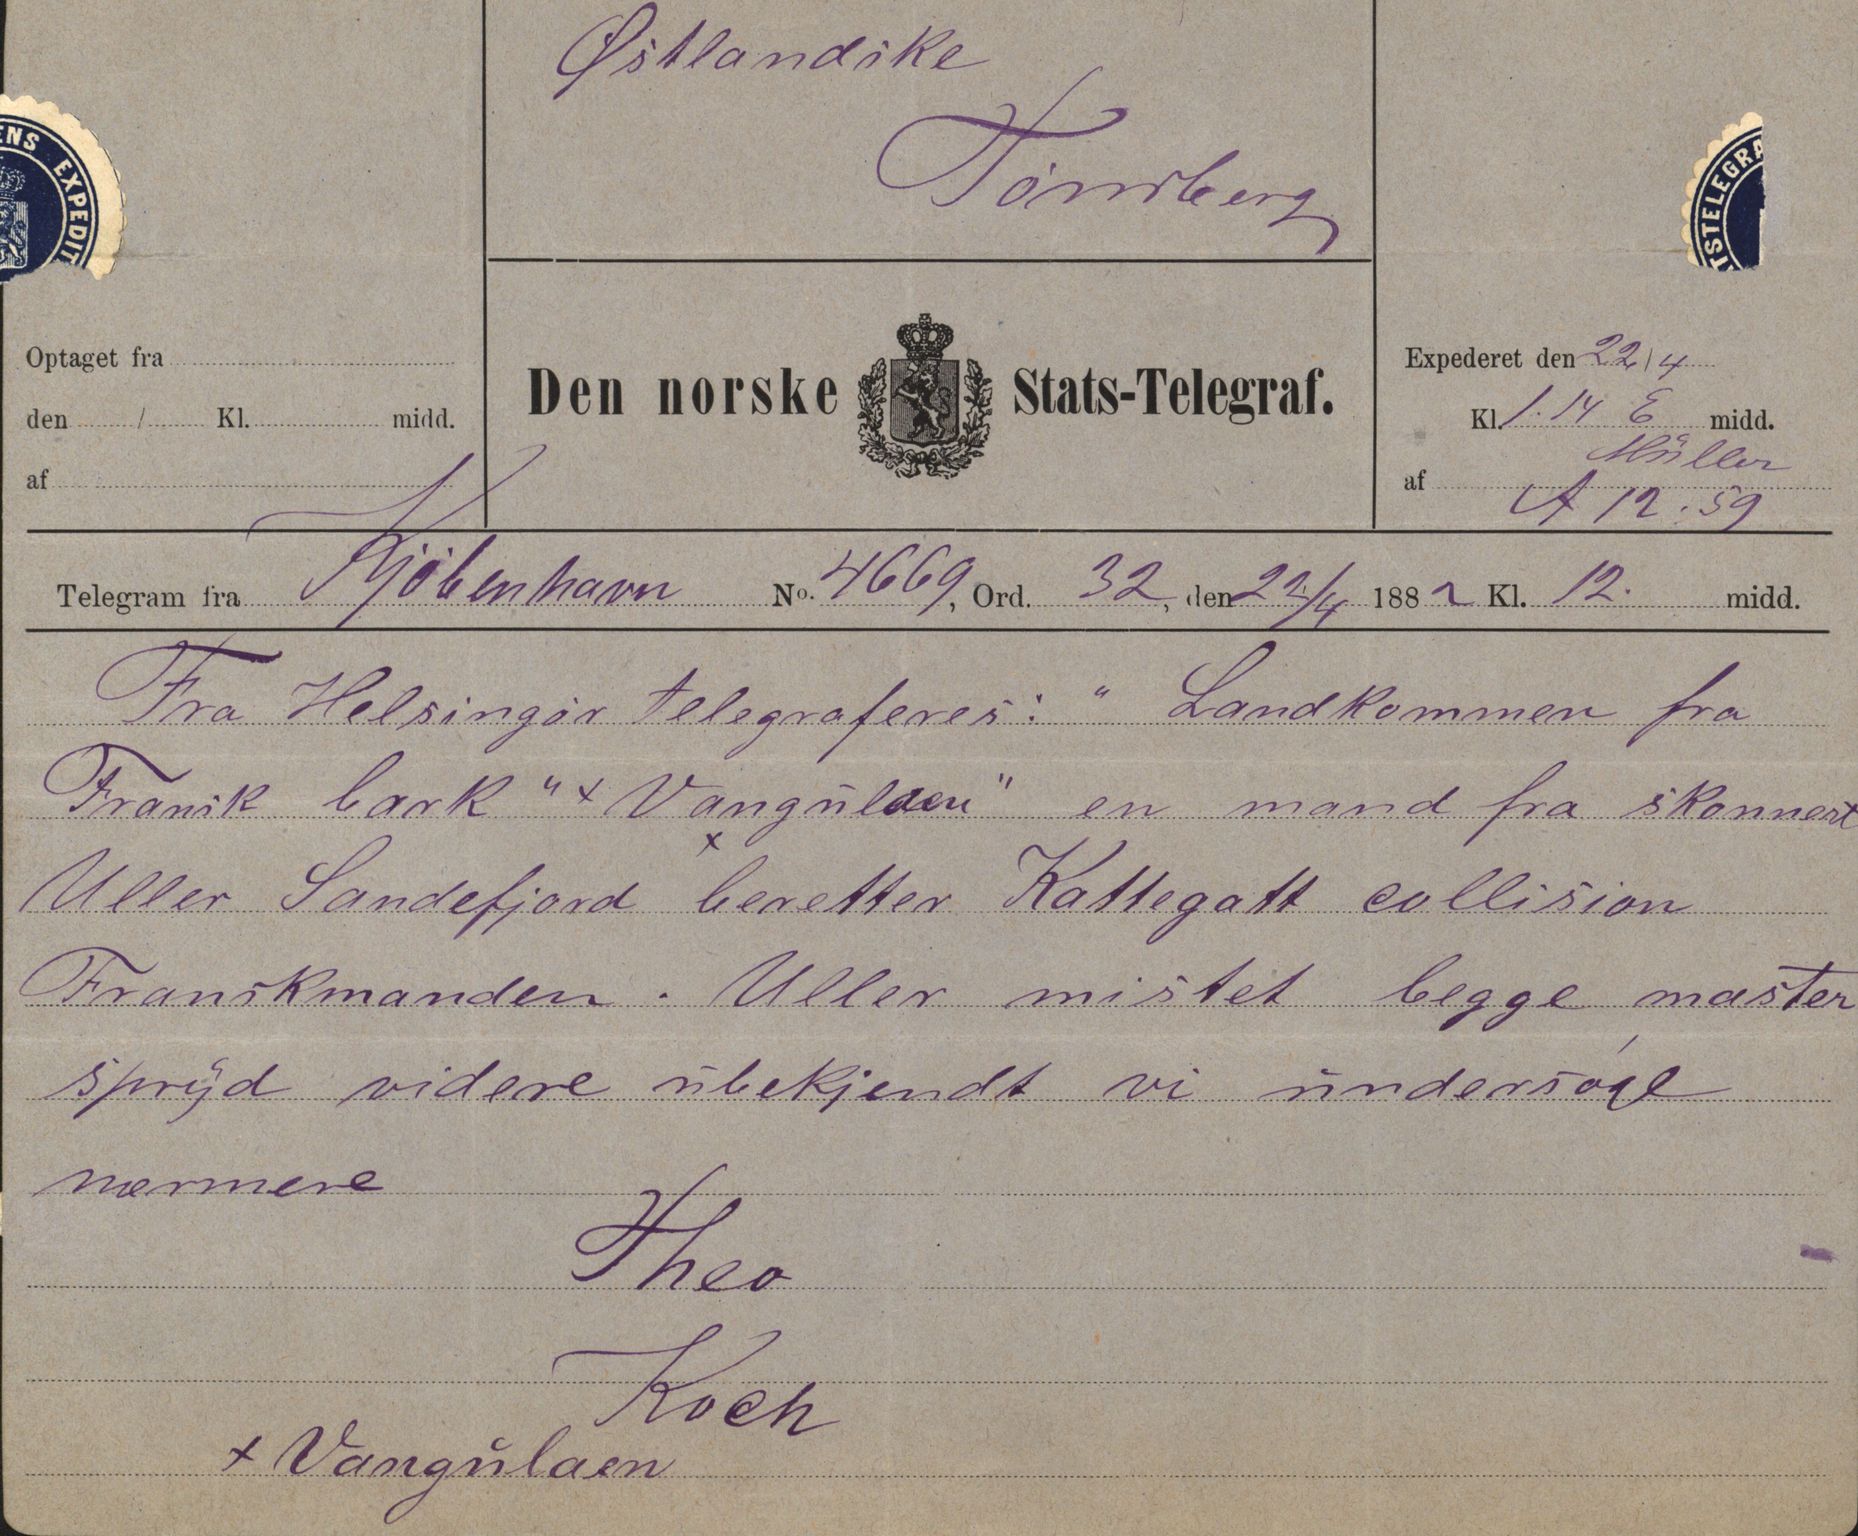 Østlandske
Tønsberg
ENS EXPEDIT
TSTELEGRA
Optaget fra
den / Kl. midd.
af
Den norske Stats-Telegraf.
Expederet den 22/4
Kl. 1.14 E midd.
Müller
af A 12.59
Telegram fra Kjöbenhavn No. 4669, Ord. 32, den 22/4 1882 Kl. 12. midd.
Fra Helsingör telegraferes: " Landkommen fra
Fransk bark "+ Vangulaen" en mand fra skonnert
Uller Sandefjord + beretter Kattegatt collision
Franskmanden. Uller mistet begge master
spryd videre ubekjendt vi undersöge
nærmere
Theo
Koch
+ Vangulaen